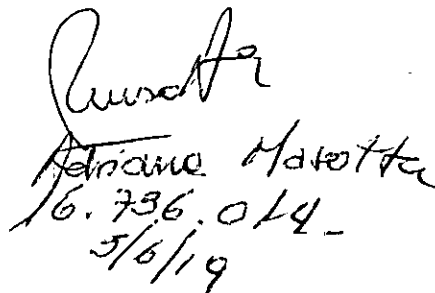 Adriana Marotta
16.736.014_
5/6/19